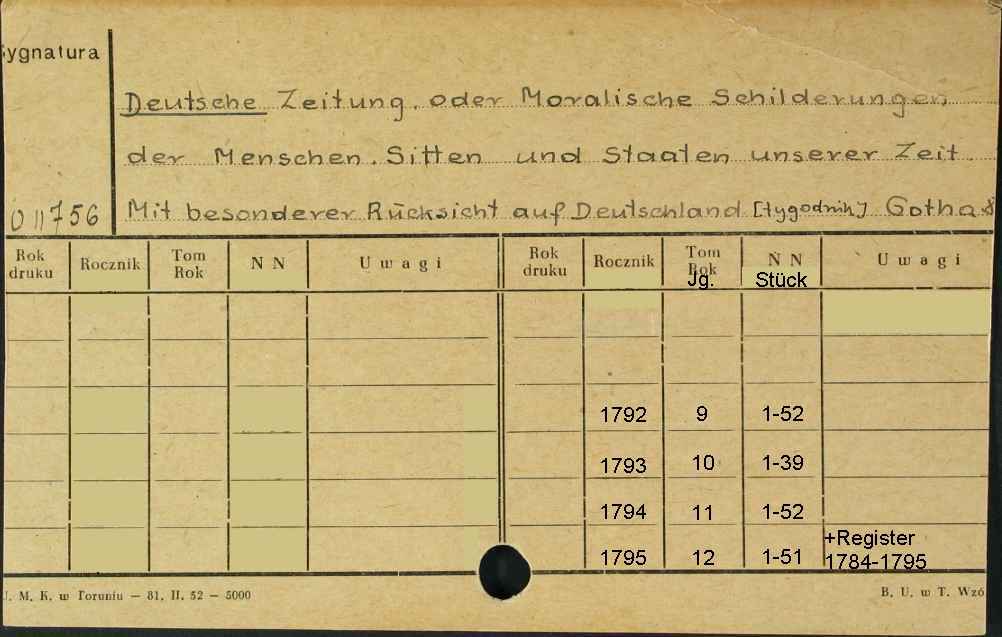 Sygnatura
Deutsche Zeitung, oder Moralische Schilderungen
der Menschen, Sitten und Staaten unserer Zeit.
011756 Mit besonderer Rücksicht auf Deutschland [tygodnik] Gotha
Rok druku Rocznik Tom Rok N N Uwagi Rok druku Rocznik Tom Rok N N Uwagi
Jg. Stück
1792 9 1-52
1793 10 1-39
1794 11 1-52
1795 12 1-51 +Register 1784-1795
J. M. K. w Toruniu — 81. II. 52 — 5000 B. U. w T. Wzó